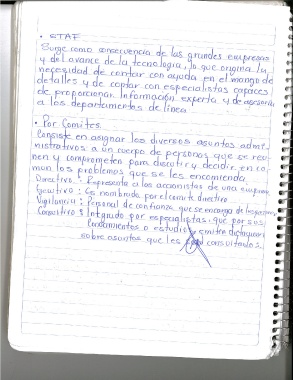 • STAF
Surge como consecuencia de las grandes empresas
y del avance de la tecnología, lo que origina la
necesidad de contar con ayuda en el manejo de
detalles y de contar con especialistas capaces
de proporcionar Información experta y de asesoría
a los departamentos de línea
• Por Comités.
Consiste en asignar los diversos asuntos admi-
nistrativos a un cuerpo de personas que se reu-
nen y comprometen para discutir y decidir, en co-
mun los problemas que se les encomienda.
Directivo: Representa a los accionistas de una empresa
Ejecutivo: Es nombrado por el comité directivo
Vigilancia: Personal de confianza que se encarga de
Consultivo: Integrado por especialistas que por sus
conocimientos o estudios emiten dictamen
sobre asuntos que les son consultados.